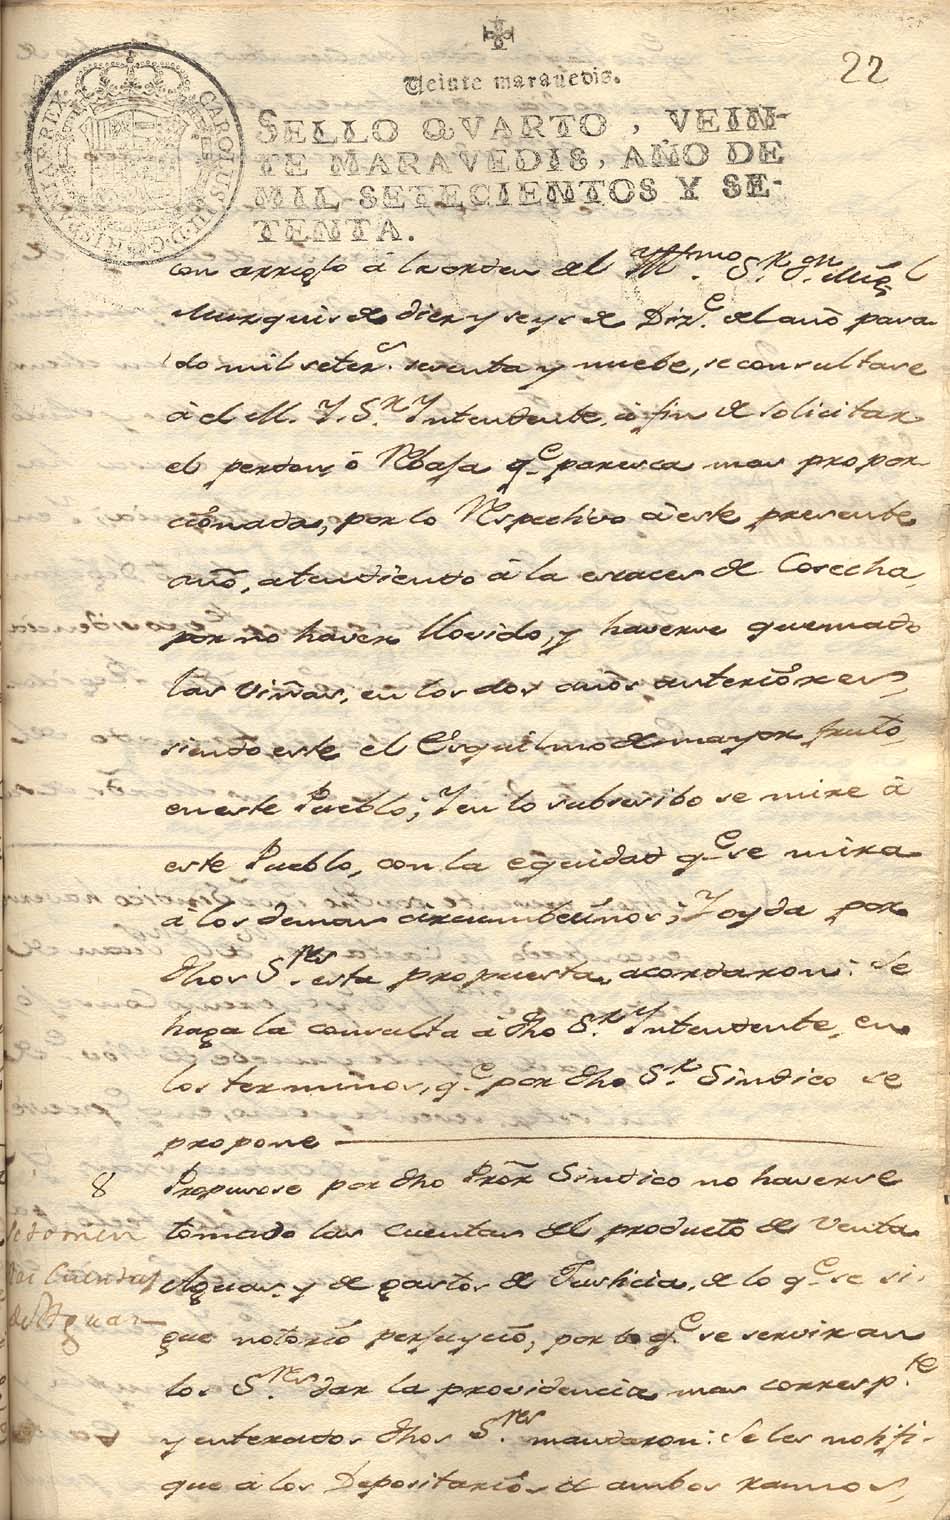 22
Veinte maravedis.
SELLO QVARTO, VEIN-
TE MARAVEDIS, AÑO DE
MIL SETECIENTOS Y SE-
TENTA.
CAROLUS III D G HISPANIAR REX
con arreglo â la orden del Yttmo. Sr. Dn.
Marques de diez y seys de Dizre. del año pasa
do mil setezs. sesenta y nuebe, se consultase
â el M. Y. Sr. Yntendente, â fin de solicitar
el perdon, ô Rbaja qe. paresca mas propor-
cionada, por lo Respectivo â este presente
año, atendiendo â la escaces de Cosecha
por no haver llovido, y haverse quemado
las viñas, en los dos años anteriôres,
siendo este el Esquilmo de mayor fruto
en este Pueblo; Y en lo subsesibo se mire â
este Pueblo, con la equidad qe. se mira
â los demas circumbecinos; Y oyda por
dhos Sres. esta propuesta, acordaron: Se
haga la consulta â dho Sr. Yntendente, en
los terminos, qe. por dho Sr. Sindico se
propone
8 Propusose por dho Prôr Sindico no haverse
Se tomen
las Cuentas
de Aguas
tomado las cuentas del producto de Venta
Aguas, y de gastos de Justicia, de lo qe. se si-
gue notorio perjuycio, por lo qe. se serviran
los Sres. dar la providencia mas corresp.te
y enterados dhos Sres. mandaron: Se les notifi-
que a los Depositariôs de ambos ramos,